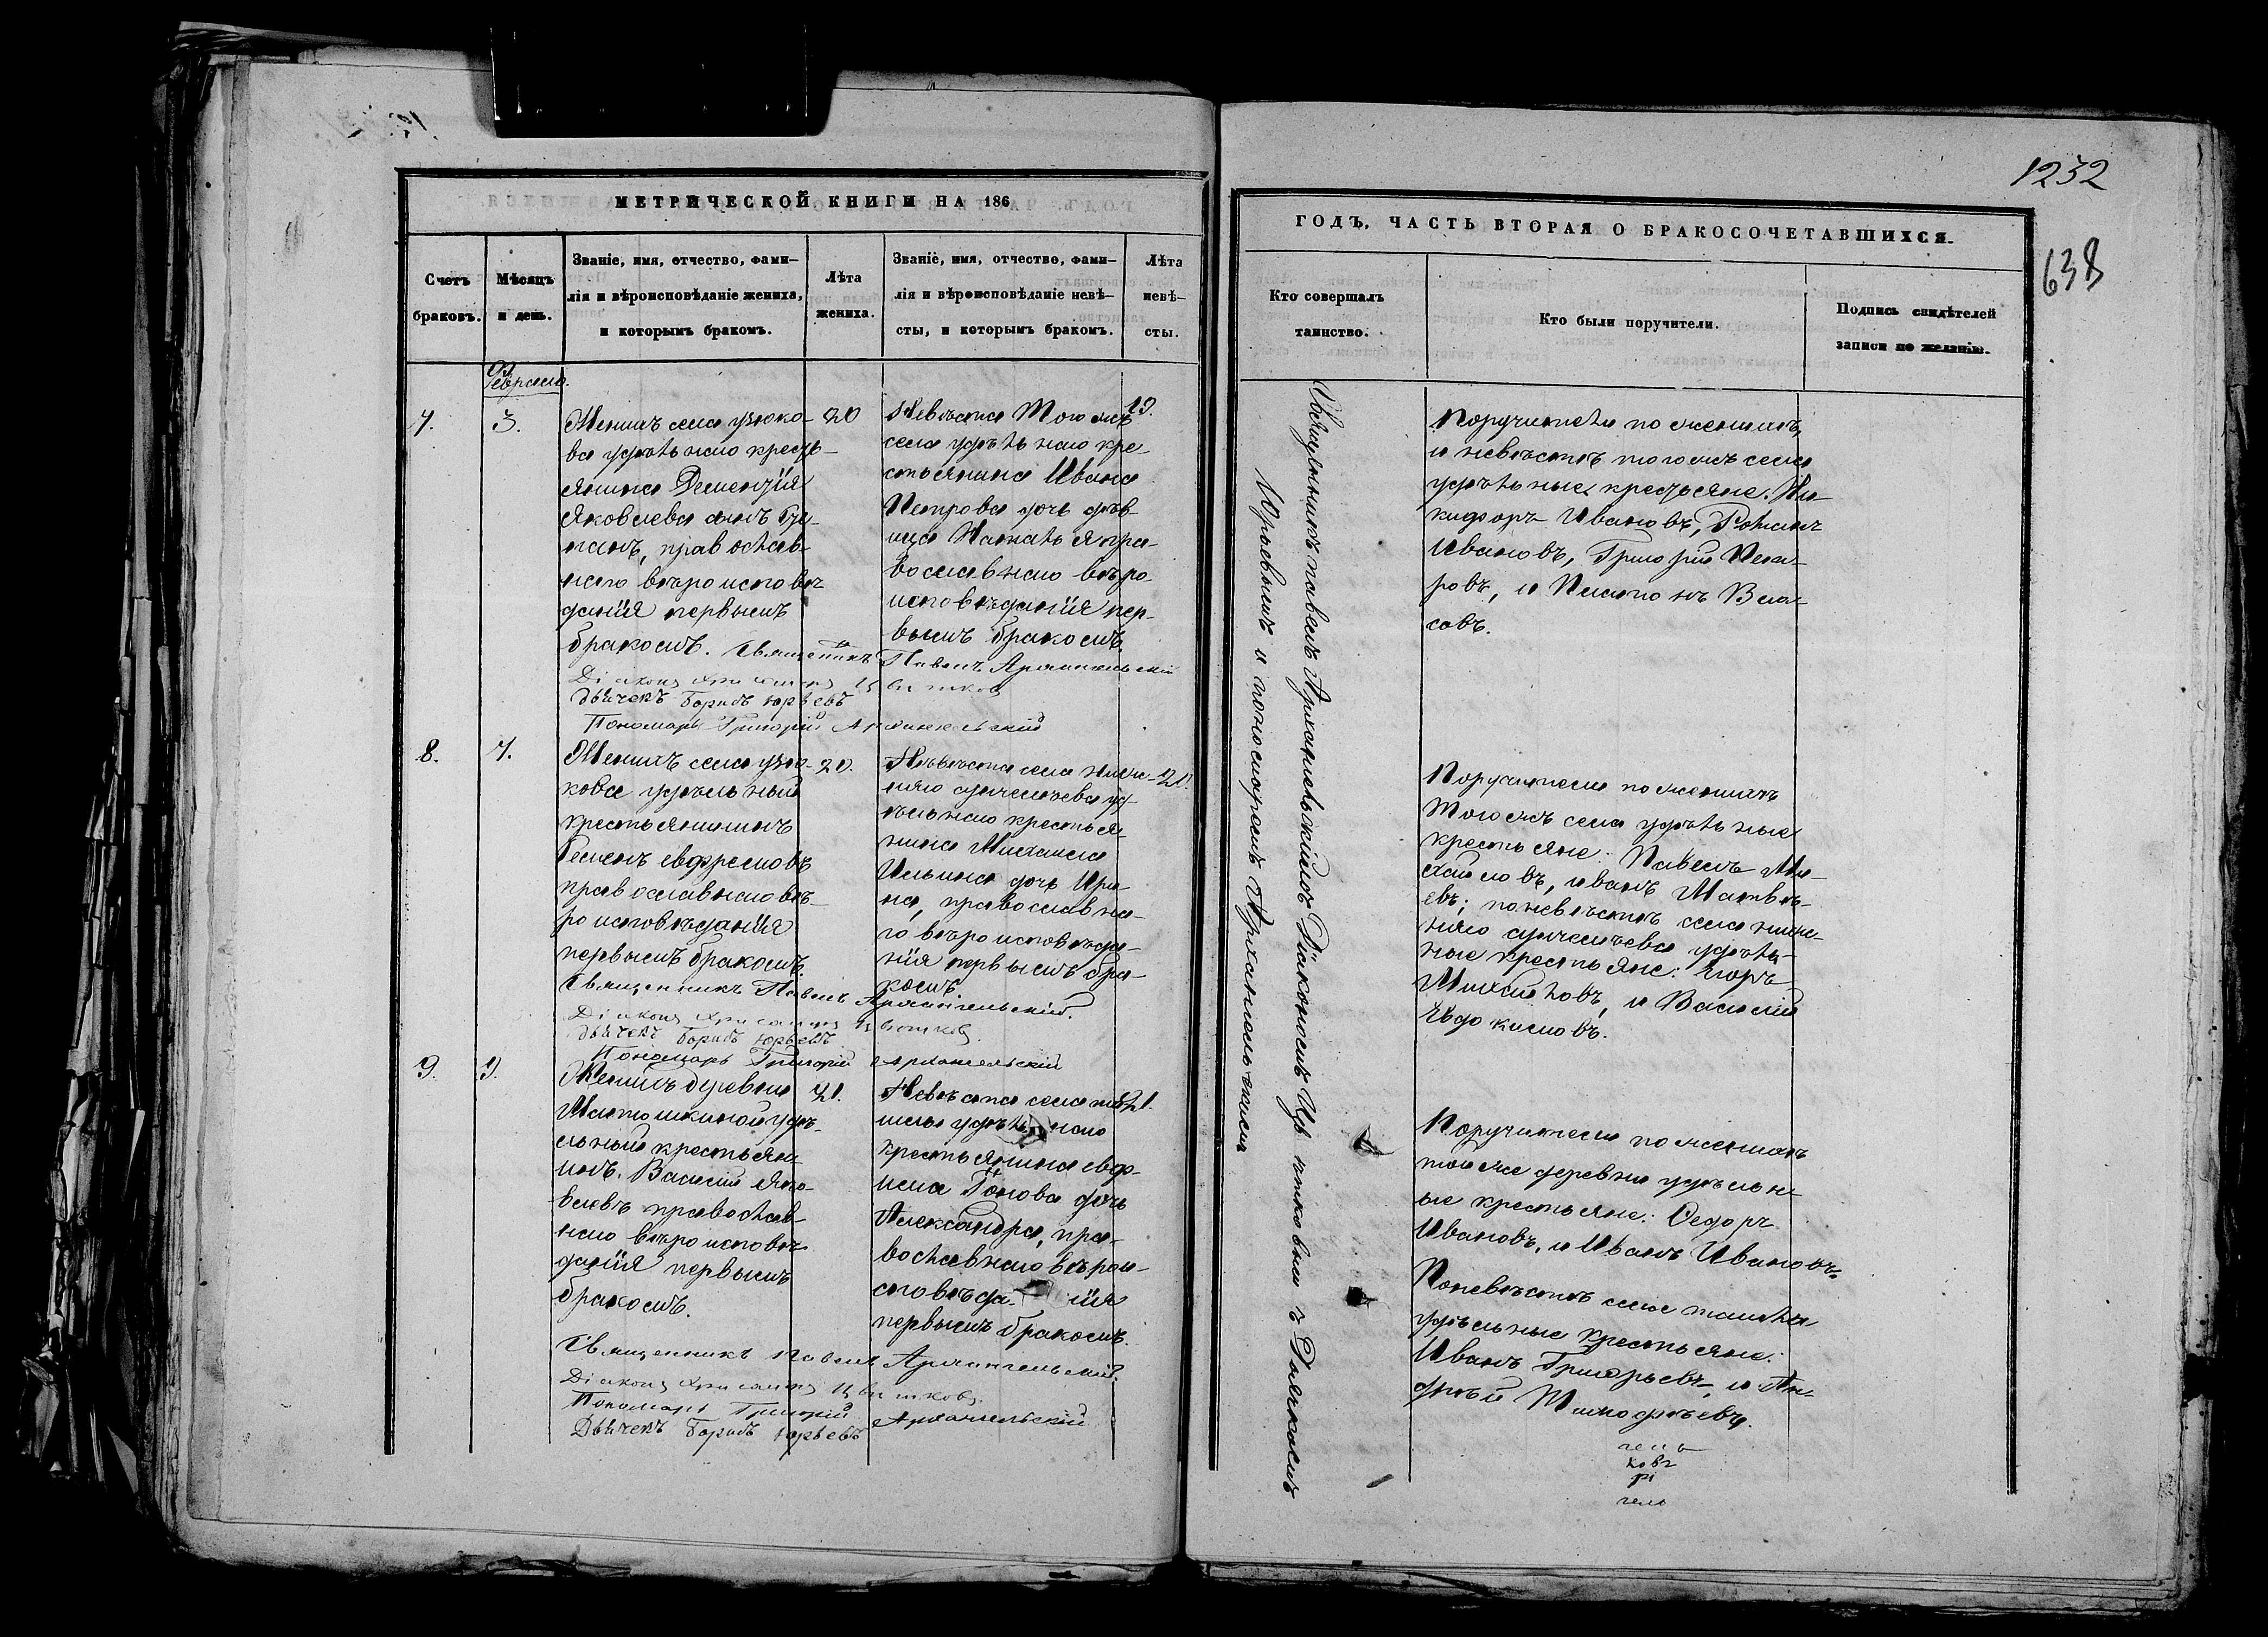 1232
638
МЕТРИЧЕСКОЙ КНИГИ НА 186
Счетъ
браковъ.
Мѣсяцъ
и день.
Званіе, имя, отчество, фами-
лія и вѣроисповѣданіе жениха,
и которымъ бракомъ.
Лѣта
жениха.
Званіе, имя, отчество, фами-
лія и вѣроисповѣданіе невѣ-
сты, и которымъ бракомъ.
Лѣта
невѣ-
сты.
Февраля.
7.
3.
Женихъ села узюко-
ва удѣльнаго кресть-
янина Дементія
Яковлева сынъ
православ-
наго вѣроисповѣ-
данія первымъ
бракомъ.
20
Невѣста того жъ
села удѣльнаго кре-
стьянина Ивана
Петрова дочь дѣв-
ица Наталья пра-
вославнаго вѣро-
исповѣданія пер-
вымъ бракомъ.
19.
Священникъ Павелъ Архангельскій
Діаконъ Хрисанфъ Цвѣтковъ
Дьячекъ Борисъ Юрьевъ
Пономарь Григорій Архангельскій
8.
7.
Женихъ села узю-
кова удѣльный
крестьянинъ
Семенъ Ефремовъ
православнаго вѣ-
роисповѣданія
первымъ бракомъ.
20.
Невѣста села Ниж-
няго удѣ-
льнаго крестья-
нина Михаила
Ильина дочь Ири-
на, православна-
го вѣроисповѣда-
нія первымъ бра-
комъ
Священникъ Павелъ Архангельскій.
Діаконъ Хрисанфъ Цвѣтковъ
Дьячекъ Борисъ Юрьевъ
Пономарь Григорій Архангельскій
9.
9.
Женихъ деревни
удѣ-
льный крестьян-
инъ Василій Яко-
влевъ православ-
наго вѣроисповѣ-
данія первымъ
бракомъ.
21.
Невѣста села
удѣльнаго
крестьянина Евф-
има дочь
Александра, пра-
вославнаго вѣрои-
сповѣданія
первымъ бракомъ.
21.
Священникъ Павелъ Архангельскій.
Діаконъ Хрисанфъ Цвѣтковъ.
Пономарь Григорій Архангельскій
Дьячекъ Борисъ Юрьевъ
ГОДЪ, ЧАСТЬ ВТОРАЯ О БРАКОСОЧЕТАВШИХСЯ.
Кто совершалъ
таинство.
Кто были поручители.
Подпись свидѣтелей
записи по желанію.
Священникъ Павелъ Архангельскій съ Діакономъ Цвѣтковымъ Дьячкомъ
Юрьевымъ и пономаремъ Архангельскимъ
Поручители по женихѣ,
и невѣстѣ того жъ села
удѣльные крестьяне: Ни-
кифоръ Ивановъ, Романъ
Ивановъ, Григорій Пет-
ровъ, и Платонъ Вла-
совъ.
Поручители по женихѣ
того жъ села удѣльные
крестьяне: Павелъ Ми-
хайловъ, Иванъ Матвѣ-
евъ; по невѣстѣ села ниж-
няго удѣль-
ные крестьяне: Егоръ
Михайловъ, и Василій
Евдокимовъ.
Поручители по женихѣ
той же деревни удѣльн-
ые крестьяне: Ѳедоръ
Ивановъ, и Иванъ Ивановъ
По невѣстѣ села
удѣльные крестьяне:
Иванъ Григорьевъ, и Ан-
дрей Тимофѣевъ.
ковъ
рі